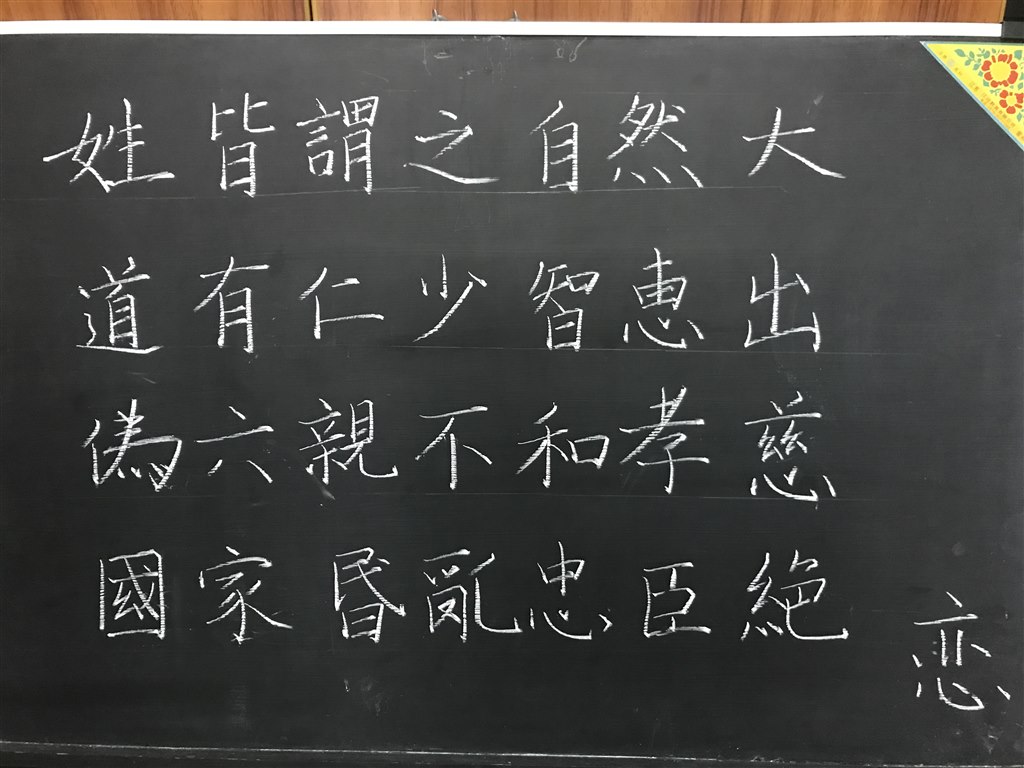 姓皆謂之自然大
道有仁少智恵出
偽六親不和孝慈
國家昬亂忠臣絶
恋